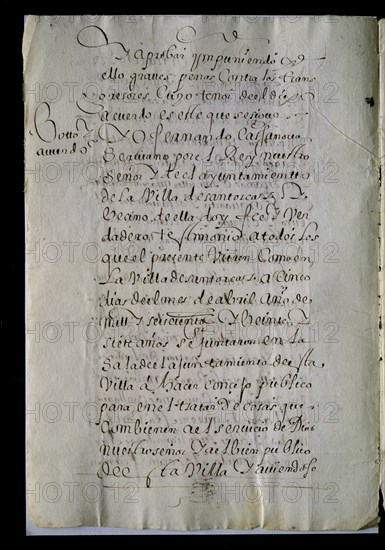 Y aprobar ymponiendo
ello graves penas Contra los trans
gresores Cuyo tenor del dho
acuerdo es este que se sigue
Botto y
acuerdo
Yo fernando Cassanova
Scrivano por el Rey nuestro
Señor y de el ayuntamiento
de la Villa de santorcaz Y
Vecino de ella doy fee y Ver
dadero testimonio a todos los
que el presente Vieren Como en
La Villa de santorcaz a cinco
dias del mes de abril año de
mill y seiscientos Y Veinte y
siete años se juntaron en la
Sala de el ajuntamiento de esta
Villa a hacer Concejo publico
para en el tratar de cosas que
Combienen a el servicio de Dios
nuestro señor Y a el bien publico
de esta Villa Y aviendose
PHOTO12